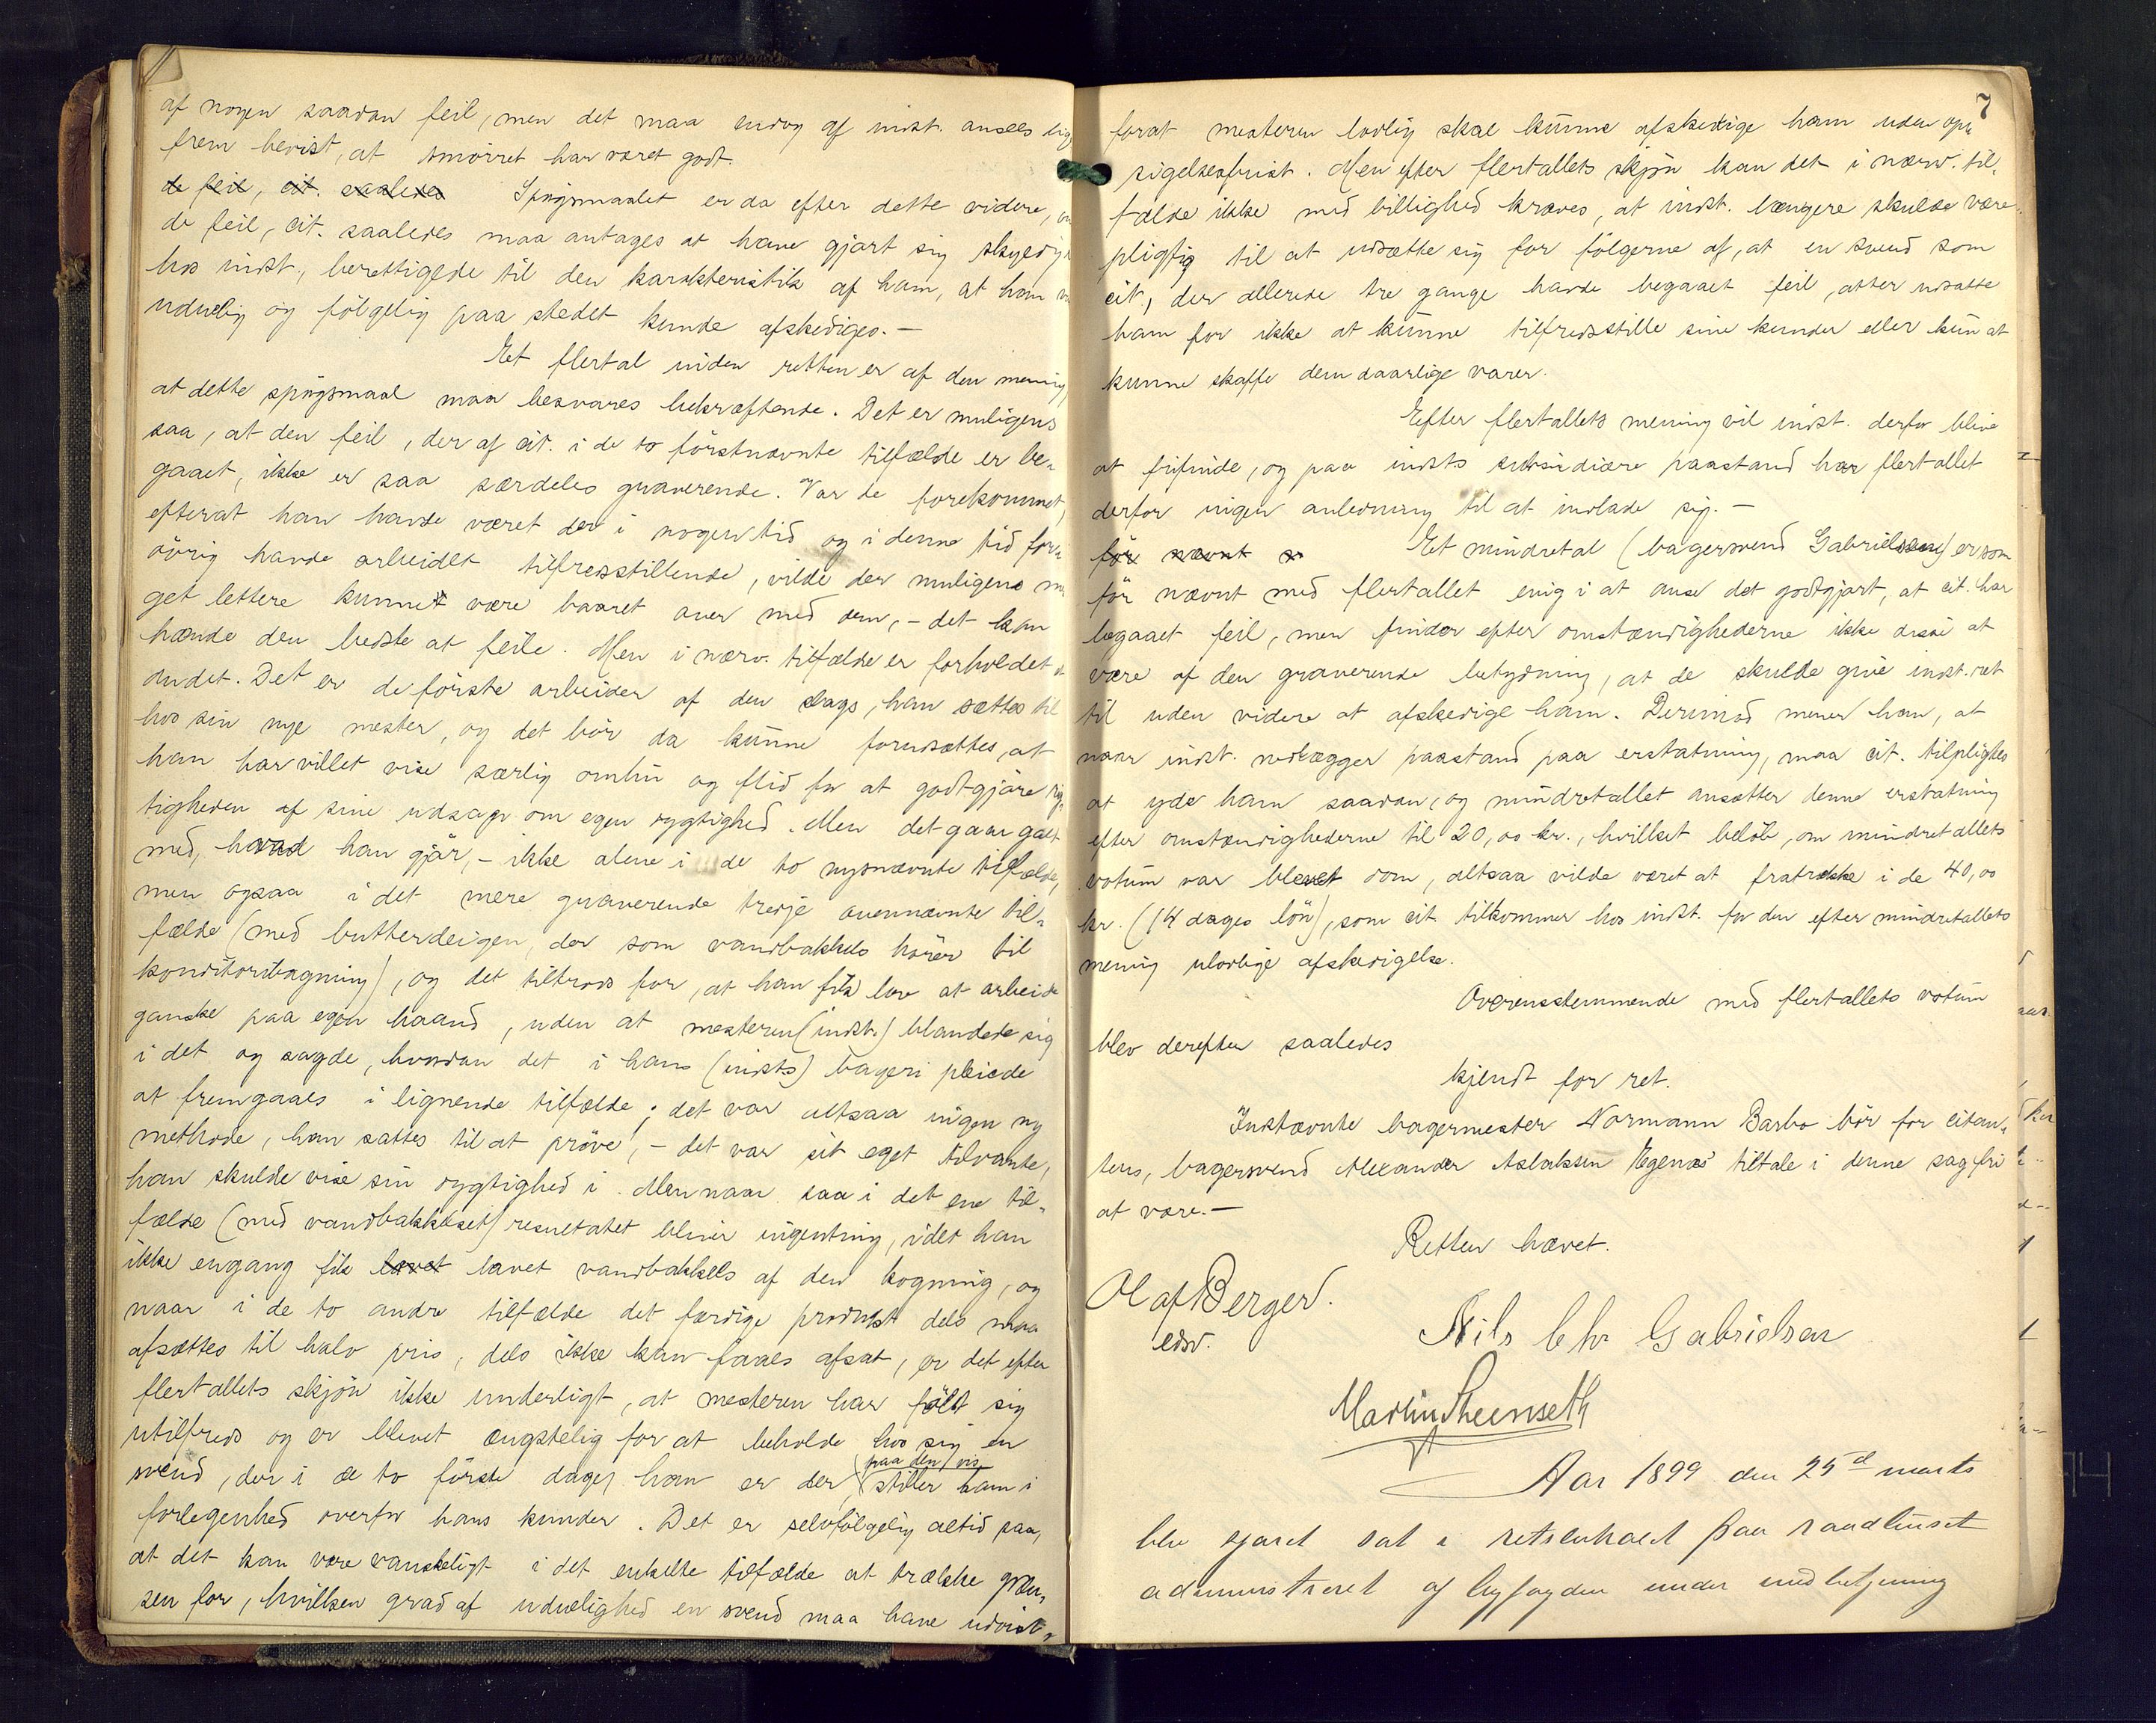 af nogen saadan feil, men det maa endog af indst. ansees lige
frem bevist, at smörret har været godt.
de feil, cit. saaledes Spörgsmaalet er da efter dette videre, om
de feil, cit. saaledes maa antages at have gjort sig skyldig i
hos indst., berettigede til den karakteristik af ham, at han var
uduelig og fölgelig paa stedet kunde afskediges.—
Et flertal inden retten er af den mening,
at dette spörgsmaal maa besvares bekræftende. Det er muligens
saa, at den feil, der af cit. i de to förstnævnte tilfælde er be-
gaaet, ikke er saa særdeles graverende. Var de forekommet,
efterat han havde været der i nogen tid og i denne tid for-
övrig havde arbeidet tilfredsstillende, vilde der muligens no
get lettere kunnet være baaret over med dem, – det kan
hænde den bedste at feile. Men i nærv. tilfælde er forholdet et
andet. Det er de förste arbeider af den slags, han sættes til
hos sin nye mester, og det bör da kunne forudsættes, at
han har villet vise særlig omhu og flid for at godtgjöre rig-
tigheden af sine udsagn om egen dygtighed. Men det gaar galt
med, hvad han gjör, – ikke alene i de to nysnævnte tilfælde,
men ogsaa i det mere graverende tredje ovennævnte til-
fælde (med butterdeigen, der som vandbakkels hörer til
konditoribagning), og det tiltrods for, at han fik lov at arbeide
ganske paa egen haand, uden at mesteren (indst.) blandede sig
i det og sagde, hvordan det i hans (indsts) bageri pleiede
at fremgaaes i lignende tilfælde; det var altsaa ingen ny
methode, han sattes til at pröve, – det var sit eget tilvante,
han skulde vise sin dygtighed i. Men naar saa i det ene til-
fælde (med vandbakkelset) resultatet bliver ingenting, idet han
ikke engang fik lavet lavet vandbakkels af den kogning, og
naar i de to andre tilfælde det færdige produkt dels maa
afsættes til halv pris, dels ikke kan faaes afsat, er det efter
flertallets skjön ikke underligt, at mesteren har fölt sig
utilfreds og er blevet ængstelig for at beholde hos sig en
svend, der i de to förste dage, han er der, (paa den vis) stiller ham i
forlegenhed overfor hans kunder. Det er selvfölgelig altid saa,
at det kan være vanskeligt i det enkelte tilfælde at trække græn-
sen for, hvilken grad af uduelighed en svend maa have udvist,
7
forat mesteren lovlig skal kunne afskedige ham uden op-
sigelsesfrist. Men efter flertallets skjön kan det i nærv. til-
fælde ikke med billighed kræves, at indst. længere skulde være
pligtig til at udsætte sig for fölgerne af, at en svend som
cit., der allerede tre gange havde begaaet feil, atter udsatte
ham for ikke at kunne tilfredsstille sine kunder eller kun at
kunne skaffe dem daarlige varer.
Efter flertallets mening vil indst. derfor blive
at frifinde, og paa indsts subsidiære paastand har flertallet
derfor ingen anledning til at indlade sig.—
för nævnt Et mindretal (bagersvend Gabrielsen) er som
för nævnt med flertallet enig i at anse det godtgjort, at cit. har
begaaet feil, men finder efter omstændighederne ikke disse at
være af den graverende betydning, at de skulde give indst. ret
til uden videre at afskedige ham. Derimod mener han, at
naar indst. nedlægger paastand paa erstatning, maa cit. tilpligtes
at yde ham saadan, og mindretallet ansætter denne erstatning
efter omstændighederne til 20,00 kr., hvilket belöb, om mindretallets
votum var blevet dom, altsaa vilde været at fratrække i de 40,00
kr. (14 dages lön), som cit. tilkommer hos indst. for den efter mindretallets
mening ulovlige afskedigelse.
Overensstemmende med flertallets votum
blev derefter saaledes
kjendt for ret.
Indstævnte bagermester Normann Barbo bör for citan-
tens, bagersvend Alexander Aslaksen Egenæs' tiltale i denne sag fri
at være.—
Retten hævet.
Olaf Berger.
edsv.
Nils Chr Gabrielsen
Martin Steenseth
Aar 1899 den 25d marts
blev sjöret sat i retslokalet paa raadhuset
administreret af byfogden under medbetjening